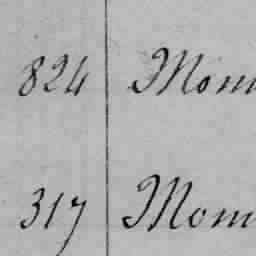 824 Mom
317 Mom